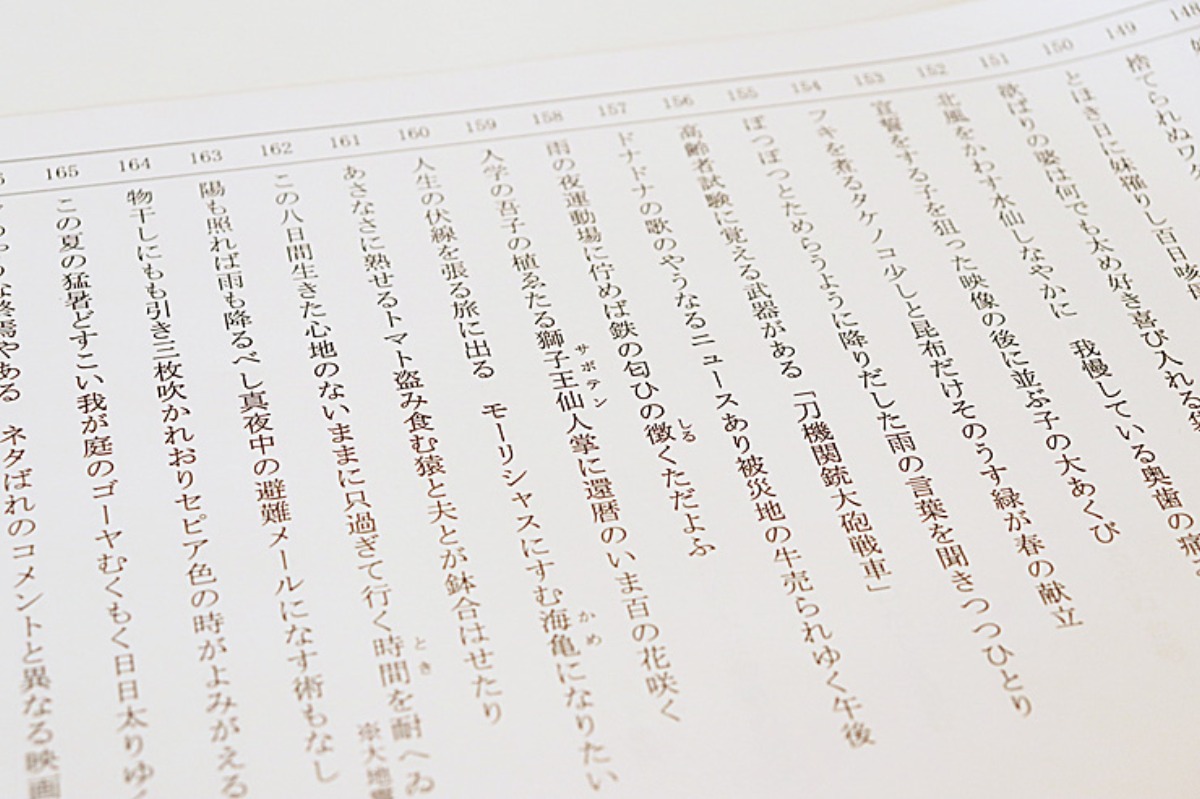 148
149
捨てられぬワク
150
とほき日に妹攫りし百日咳
151
欲ばりの婆は何でも太め好き喜び入れる
152
北風をかわす水仙しなやかに　我慢している奥歯の痛
153
宣誓をする子を狙った映像の後に並ぶ子の大あくび
154
フキを煮るタケノコ少しと昆布だけそのうす緑が春の献立
155
ぽつぽつとためらうように降りだした雨の言葉を聞きつつひとり
156
高齢者試験に覚える武器がある「刀機関銃大砲戦車」
157
ドナドナの歌のやうなるニュースあり被災地の牛売られゆく午後
158
雨の夜運動場に佇めば鉄の匂ひの徴くただよふ
しる
159
入学の吾子の植ゑたる獅子王仙人掌に還暦のいま百の花咲く
サボテン
160
人生の伏線を張る旅に出る　モーリシャスにすむ海亀になりたい
かめ
161
あさなさに熟せるトマト盗み食む猿と夫とが鉢合はせたり
162
この八日間生きた心地のないままに只過ぎて行く時間を耐へゐ
とき
※大地震
163
陽も照れば雨も降るべし真夜中の避難メールになす術もなし
164
物干しにもも引き三枚吹かれおりセピア色の時がよみがえる
165
この夏の猛暑どすこい我が庭のゴーヤむくもく日日太りゆく
な終焉やある　ネタばれのコメントと異なる映画